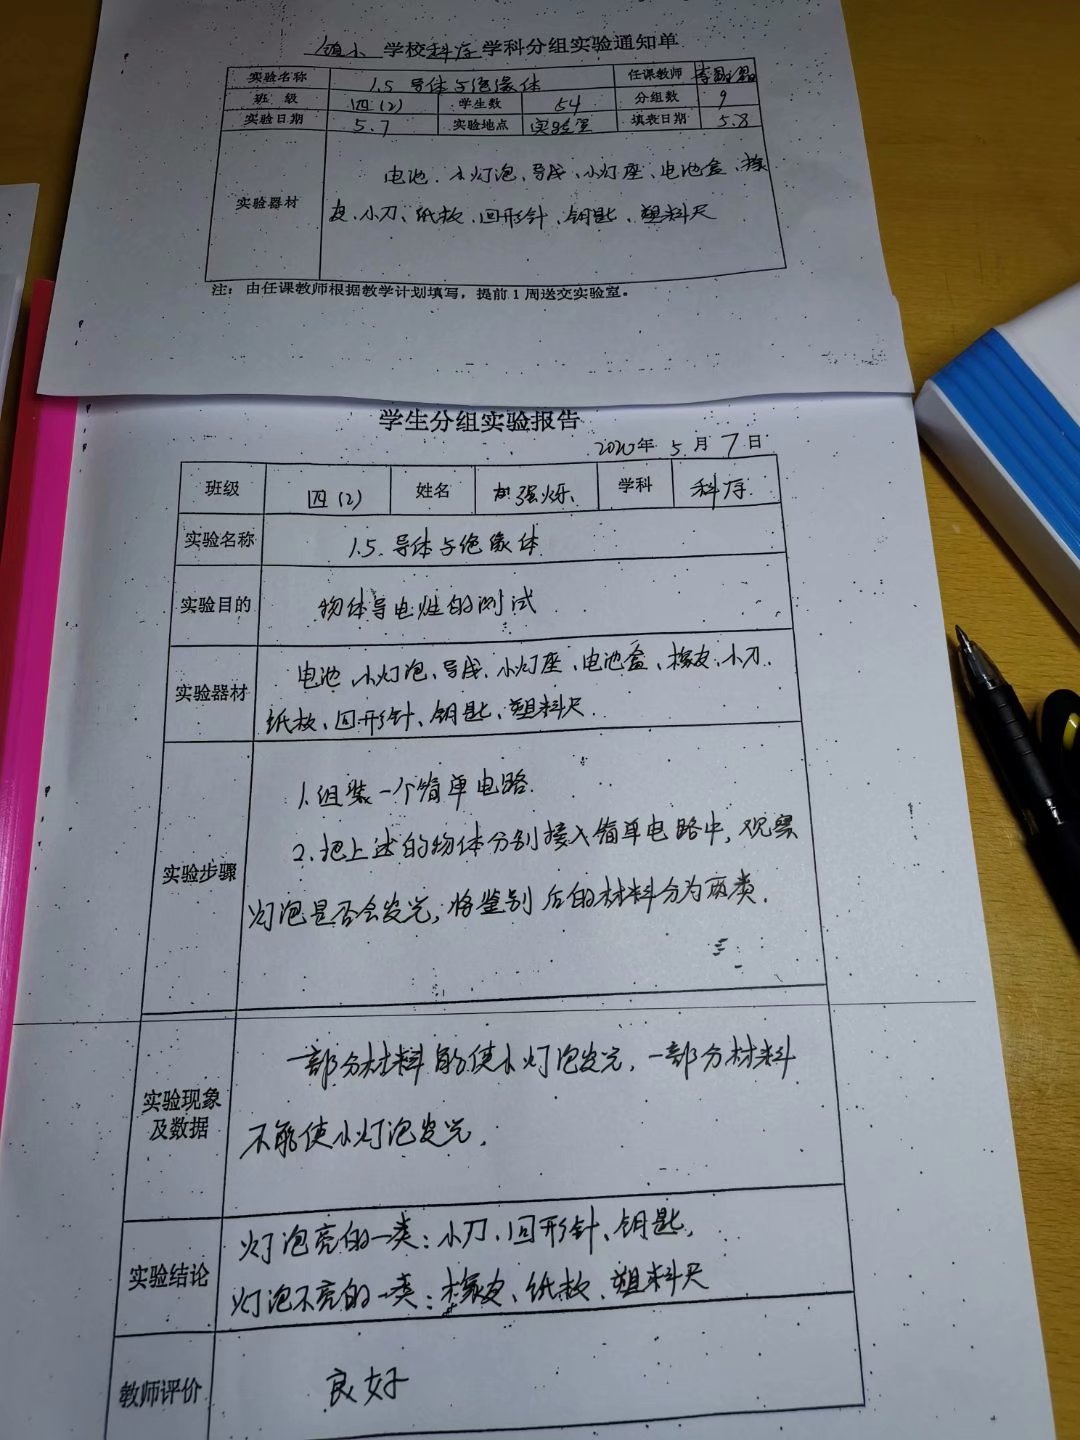 镇小 学校科存学科分组实验通知单
实验名称 1.5 导体与绝缘体 任课教师
班 级 四(2) 学生数 54 分组数 9
实验日期 5.7 实验地点 实验室 填表日期 5.8
实验器材 电池、小灯泡、导线、小灯座、电池盒、橡
皮、小刀、纸板、回形针、钥匙、塑料尺
注: 由任课教师根据教学计划填写，提前1周送交实验室。
学生分组实验报告
2020年 5 月 7 日
班级 四(2) 姓名 学科 科存
实验名称 1.5. 导体与绝缘体
实验目的 物体导电性的测试
实验器材 电池、小灯泡、导线、小灯座、电池盒、橡皮、小刀、
纸板、回形针、钥匙、塑料尺
实验步骤 1.组装一个简单电路.
2.把上述的物体分别接入简单电路中，观察
灯泡是否会发光，将鉴别后的材料分为两类.
实验现象
及数据
一部分材料能使小灯泡发光，一部分材料
不能使小灯泡发光.
实验结论 灯泡亮的一类:小刀、回形针、钥匙,
灯泡不亮的一类:橡皮、纸板、塑料尺
教师评价 良好